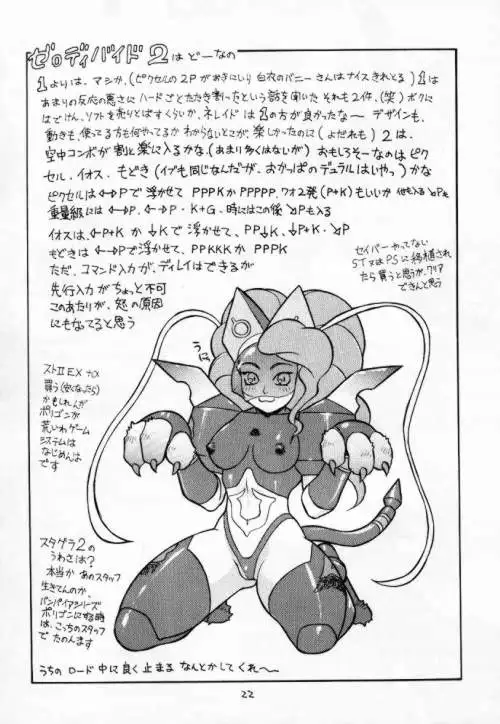 ゼロディバイド2はどーなの
1よりは、マシか、(ピクセルの2Pがおきにいり 白衣のバニーさんはナイスきれとる) 1は
あまりの反応の悪さにハードごとたたき割ったという話を聞いた それも2件、(笑) ボクに
はでけん、ソフトを売りとばすくらいか、ネレイドは1の方が良かったな〜 デザインも、
動きも、使ってる方も何やってるか わからないとこが、楽しかったのに(よだれも) 2は、
空中コンボが割と楽に入るかな、(あまり多くはないが) おもしろそーなのはピク
セル、イオス、もどき(イブも同じなんだが、おかっぱのデュラルはいやっ)かな
ピクセルは←→Pで浮かせて PPPKか PPPPP、ワオ2発(P+K)もいいか 他も入る↘Pも
重量級には←→P、←→P・K+G、時にはこの後↘Pも入る
イオスは、←P+Kか ↓Kで浮かせて、PP↓K、↓P+K・↘P
もどきは←→Pで浮かせて、PPKKKか PPPK
ただ、コマンド入力が、ディレイはできるが
先行入力がちょっと不可
このあたりが、怒の原因
にもなってると思う
セイバーやってない
STヌはPSに移植され
たら買うと思うが、クリア
できんと思う
うに
ストII EX+α
買う(安くなったら)
かもしれんが
ポリゴンが
荒いわゲーム
システムは
なじめんは
です
スタグラ2の
うわさは?
本当か あのスタッフ
生きてんのか、
バンパイアシリーズ
ポリゴンにする時
は、こっちのスタッフ
でたのんます
うちの ロード 中に良く止まる なんとかしてくれ〜
22